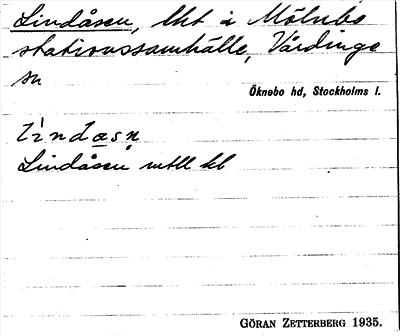 Lindåsen, lht i Mölnbo
stationssamhälle, Vårdinge
sn
Öknebo hd, Stockholms l.
lindåsn
Lindåsen mtll kl
GÖRAN ZETTERBERG 1935.